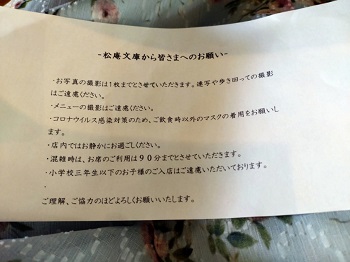 -松庵文庫から皆さまへのお願い-
・お写真の撮影は1枚までとさせていただきます。連写や歩き回っての撮影
はご遠慮ください。
・メニューの撮影はご遠慮ください。
・コロナウイルス感染対策のため、ご飲食時以外のマスクの着用をお願いし
ます。
・店内ではお静かにお過ごしください。
・混雑時は、お席のご利用は90分までとさせていただきます。
・小学校三年生以下のお子様のご入店はご遠慮いただいております。
・
ご理解、ご協力のほどよろしくお願いいたします。